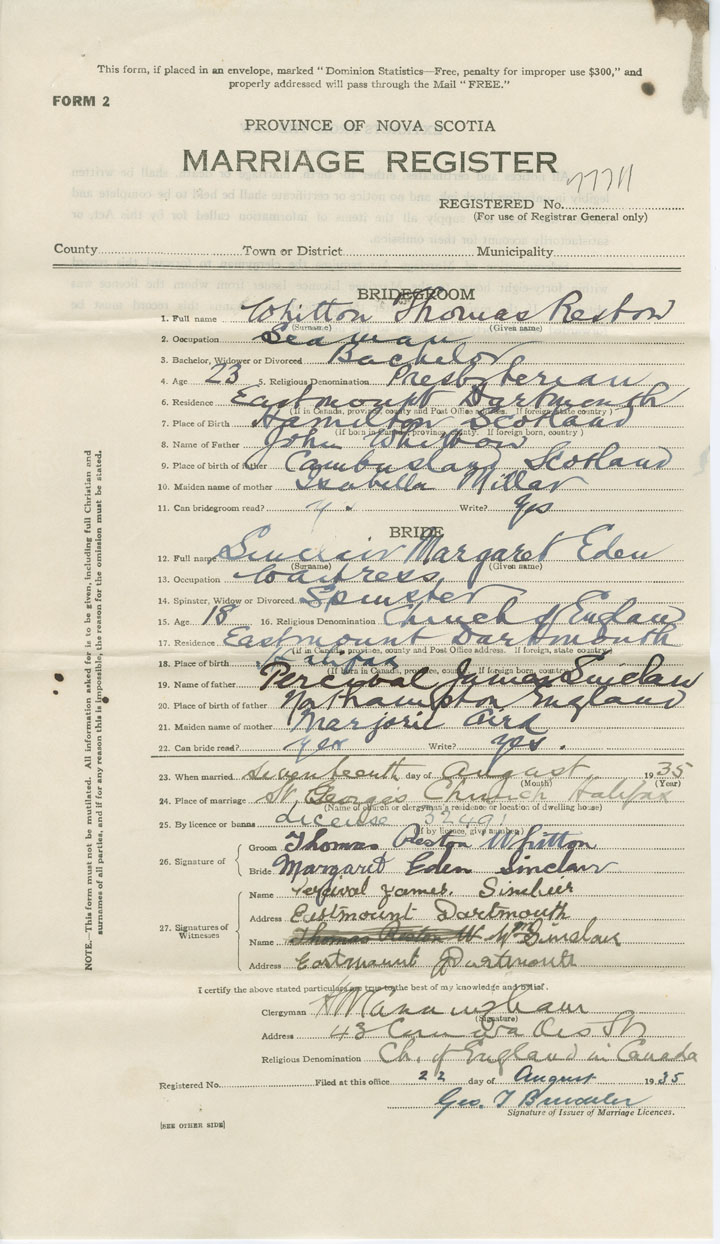 This form, if placed in an envelope, marked "Dominion Statistics—Free, penalty for improper use $300," and
properly addressed will pass through the Mail "FREE."
FORM 2
PROVINCE OF NOVA SCOTIA
MARRIAGE REGISTER
REGISTERED No.
(For use of Registrar General only)
County Town or District Municipality
BRIDEGROOM
1. Full name Whitton Thomas Reston
(Surname) (Given name)
2. Occupation Seaman
3. Bachelor, Widower or Divorced Bachelor
4. Age 23 5. Religious Denomination Presbyterian
6. Residence Eastmount Dartmouth
(If in Canada, province, county and Post Office address. If foreign, state country)
7. Place of Birth Hamilton Scotland
(If born in Canada, province, county. If foreign born, country)
8. Name of Father John Whitton
9. Place of birth of father Cambuslang Scotland
10. Maiden name of mother Isabella Millar
11. Can bridegroom read? Write? Yes
BRIDE
12. Full name Sinclair Margaret Eden
(Surname) (Given name)
13. Occupation Waitress
14. Spinster, Widow or Divorced Spinster
15. Age 18 16. Religious Denomination Church of England
17. Residence Eastmount Dartmouth
(If in Canada, province, county and Post Office address. If foreign, state country)
18. Place of birth Halifax
(If born in Canada, province, county. If foreign born, country)
19. Name of father Percival James Sinclair
20. Place of birth of father Northampton England
21. Maiden name of mother Marjorie Aird
22. Can bride read? yes Write? yes.
23. When married Seventeenth day of August 1935
(Month) (Year)
24. Place of marriage St. George's Church Halifax
(Name of church or clergyman's residence or location of dwelling house)
25. By licence or banns License
(If by licence, give number)
26. Signature of
Groom Thomas Reston Whitton
Bride Margaret Eden Sinclair
27. Signatures of Witnesses
Name Percival James. Sinclair
Address Eastmount Dartmouth
Name Thomas Reston W Sinclair
Address Eastmount Dartmouth
I certify the above stated particulars are true to the best of my knowledge and belief.
Clergyman
(Signature)
Address 48 St
Religious Denomination Ch. of England in Canada
Registered No. Filed at this office 22 day of August 1935
Geo. T
Signature of Issuer of Marriage Licences.
[SEE OTHER SIDE]
NOTE.—This form must not be mutilated. All information asked for is to be given, including full Christian and
surnames of all parties, and if for any reason this is impossible, the reason for the omission must be stated.